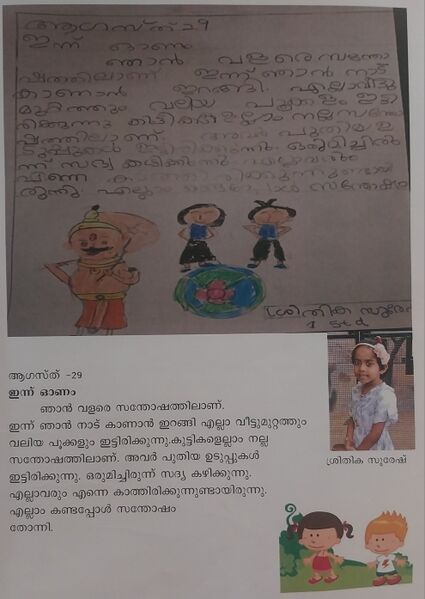 ആഗസ്ത് 29
ഇന്ന് ഓണം
ഞാൻ വളരെ സന്തോ
ഷത്തിലാണ് ഇന്ന് ഞാൻ നാട്
കാണാൻ ഇറങ്ങി. എല്ലാവീട്ടു
മുറ്റത്തും വലിയ പൂക്കളം ഇട്ടി
രിക്കുന്നു കുട്ടികളെല്ലാം നല്ല സന്തോ
ഷത്തിലാണ്. അവർ പുതിയ ഉ
ടുപ്പുകൾ ഇട്ടിരിക്കുന്നു. ഒരുമിച്ചിരു
ന്ന് സദ്യ കഴിക്കുന്നു. എല്ലാവരും
എന്നെ
എല്ലാം സന്തോഷം
ശ്രിതിക സുരേ
1 std
ആഗസ്ത് -29
ഇന്ന് ഓണം
ഞാൻ വളരെ സന്തോഷത്തിലാണ്.
ഇന്ന് ഞാൻ നാട് കാണാൻ ഇറങ്ങി എല്ലാ വീട്ടുമുറ്റത്തും
വലിയ പൂക്കളും ഇട്ടിരിക്കുന്നു.കുട്ടികളെല്ലാം നല്ല
സന്തോഷത്തിലാണ്. അവർ പുതിയ ഉടുപ്പുകൾ
ഇട്ടിരിക്കുന്നു. ഒരുമിച്ചിരുന്ന് സദ്യ കഴിക്കുന്നു.
എല്ലാവരും എന്നെ കാത്തിരിക്കുന്നുണ്ടായിരുന്നു.
എല്ലാം കണ്ടപ്പോൾ സന്തോഷം
തോന്നി.
ശ്രിതിക സുരേഷ്